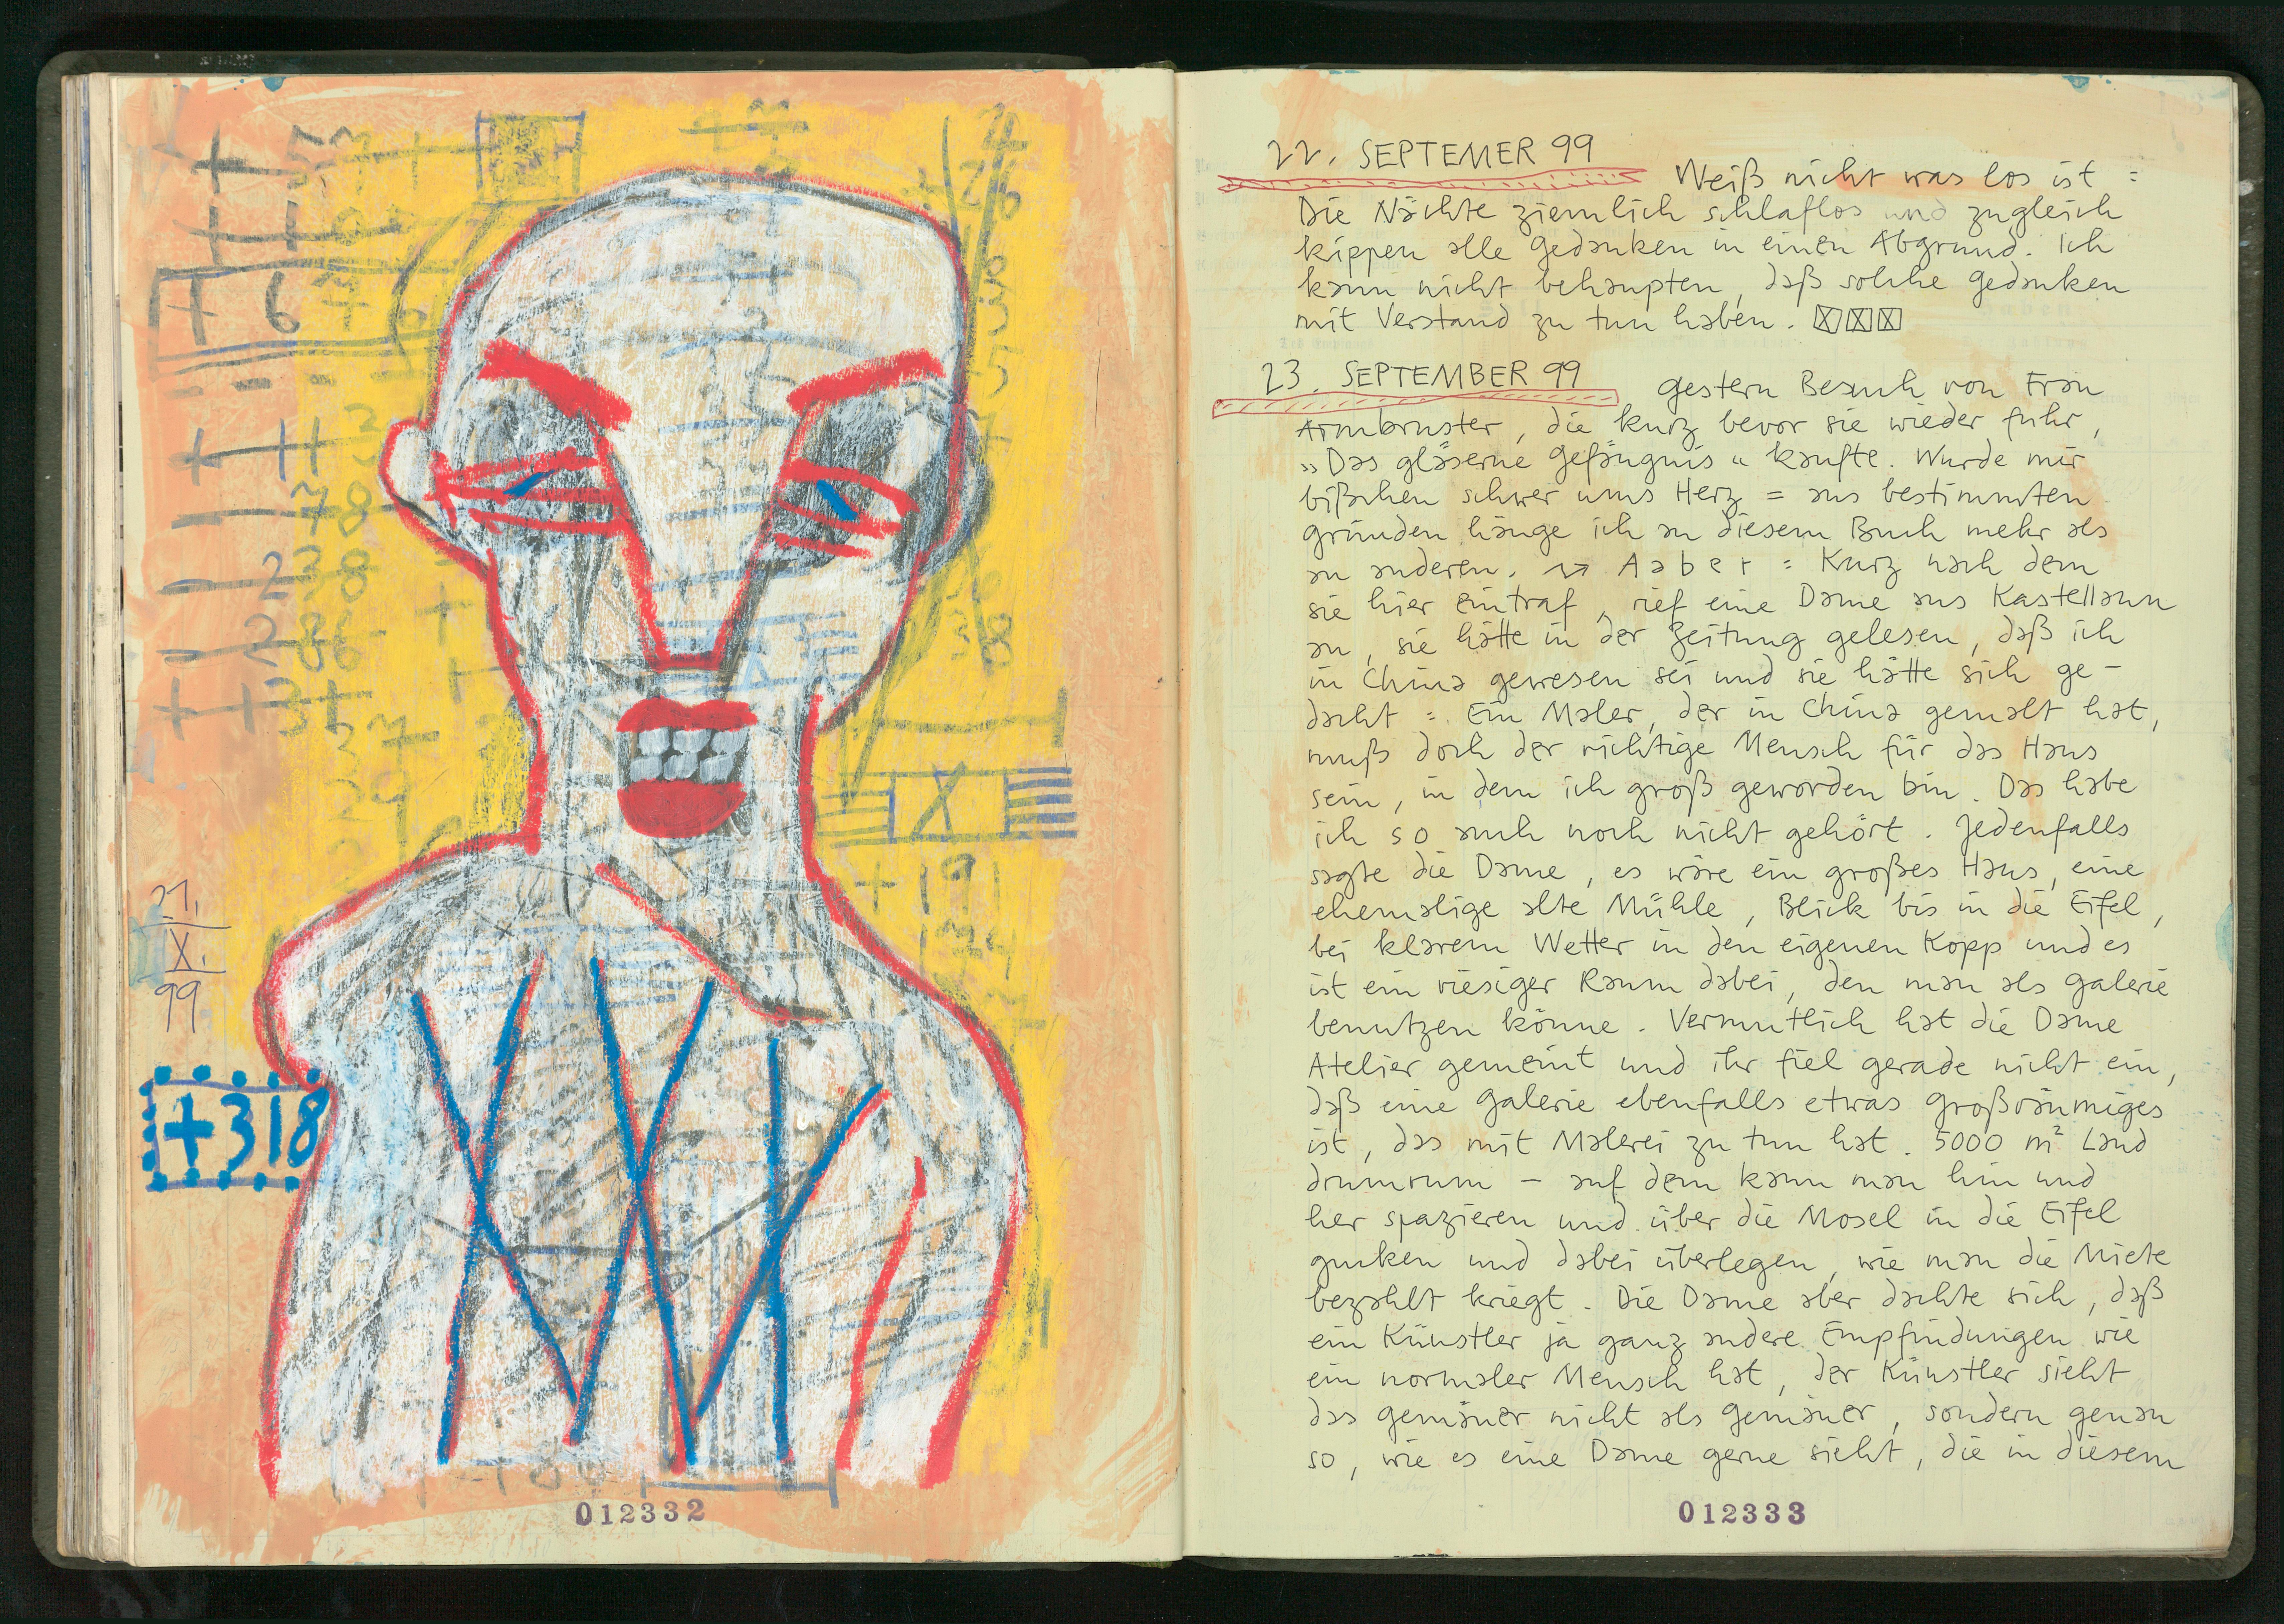 + 57
+ 6
+ 113
- 78
- 238
- 286
+ 131
29
X
+191
21.
X.
99
+318
012332
22. SEPTEMER 99
Weiß nicht was los ist =
Die Nächte ziemlich schlaflos und zugleich
kippen alle Gedanken in einen Abgrund. Ich
kann nicht behaupten, daß solche Gedanken
mit Verstand zu tun haben.
23. SEPTEMBER 99
Gestern Besuch von Frau
Armbruster, die kurz bevor sie wieder fuhr,
"Das gläserne Gefängnis" kaufte. Wurde mir
bißchen schwer ums Herz = aus bestimmten
Gründen hänge ich an diesem Buch mehr als
an anderen. → Aaber = Kurz nach dem
sie hier eintraf, rief eine Dame aus Kastellaun
an, sie hätte in der Zeitung gelesen, daß ich
in China gewesen sei und sie hätte sich ge-
dacht = Ein Maler, der in China gemalt hat,
muß doch der richtige Mensch für das Haus
sein, in dem ich groß geworden bin. Das habe
ich so auch noch nicht gehört. Jedenfalls
sagte die Dame, es wäre ein großes Haus, eine
ehemalige alte Mühle, Blick bis in die Eifel,
bei klarem Wetter in den eigenen Kopp und es
ist ein riesiger Raum dabei, den man als Galerie
benutzen könne. Vermutlich hat die Dame
Atelier gemeint und ihr fiel gerade nicht ein,
daß eine Galerie ebenfalls etwas großräumiges
ist, das mit Malerei zu tun hat. 5000 m² Land
drumrum – auf dem kann man hin und
her spazieren und über die Mosel in die Eifel
gucken und dabei überlegen, wie man die Miete
bezahlt kriegt. Die Dame aber dachte sich, daß
ein Künstler ja ganz andere Empfindungen wie
ein normaler Mensch hat, der Künstler sieht
das Gemäuer nicht als Gemäuer, sondern genau
so, wie es eine Dame gerne sieht, die in diesem
012333